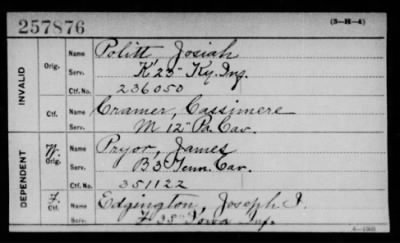 257876 (3-H-4)
INVALID Orig. Name Politt, Josiah
Serv. K, 23" Ky. Inf.
Ctf. No. 236050
Ctf. Name Cramer, Cassimere
Serv. M 12" Pa. Cav.
DEPENDENT W. Orig. Name Pryor, James
Serv. B 3 Tenn. Cav.
Ctf. No. 351122
F. Ctf. Name Edgington, Joseph I.
Serv. F 35" Iowa Inf.